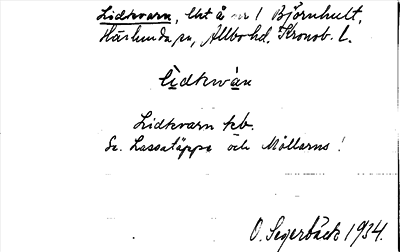 Lidkvarn, lht å nr 1 Björnhult,
Häslunda sn, Allbo hd. Kronob. l.
lìdkwàn
Lidkvarn kb.
Se. Lassatäppa och Möllarns!
O. Segerbäck 1934.